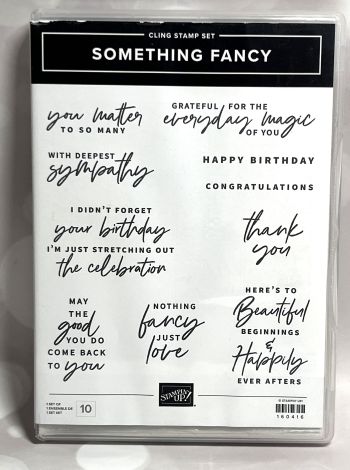 CLING STAMP SET
SOMETHING FANCY
you matter
TO SO MANY
GRATEFUL FOR THE
everyday magic
OF YOU
WITH DEEPEST
sympathy
HAPPY BIRTHDAY
CONGRATULATIONS
I DIDN'T FORGET
your birthday
I'M JUST STRETCHING OUT
the celebration
thank
you
MAY
THE
good
YOU DO
COME BACK
TO you
NOTHING
fancy
JUST
love
HERE'S TO
Beautiful
BEGINNINGS
&
Happily
EVER AFTERS
1 SET OF
1 ENSEMBLE DE
1 SET SET
10
STAMPIN' UP!
© STAMPIN' UP!
160416